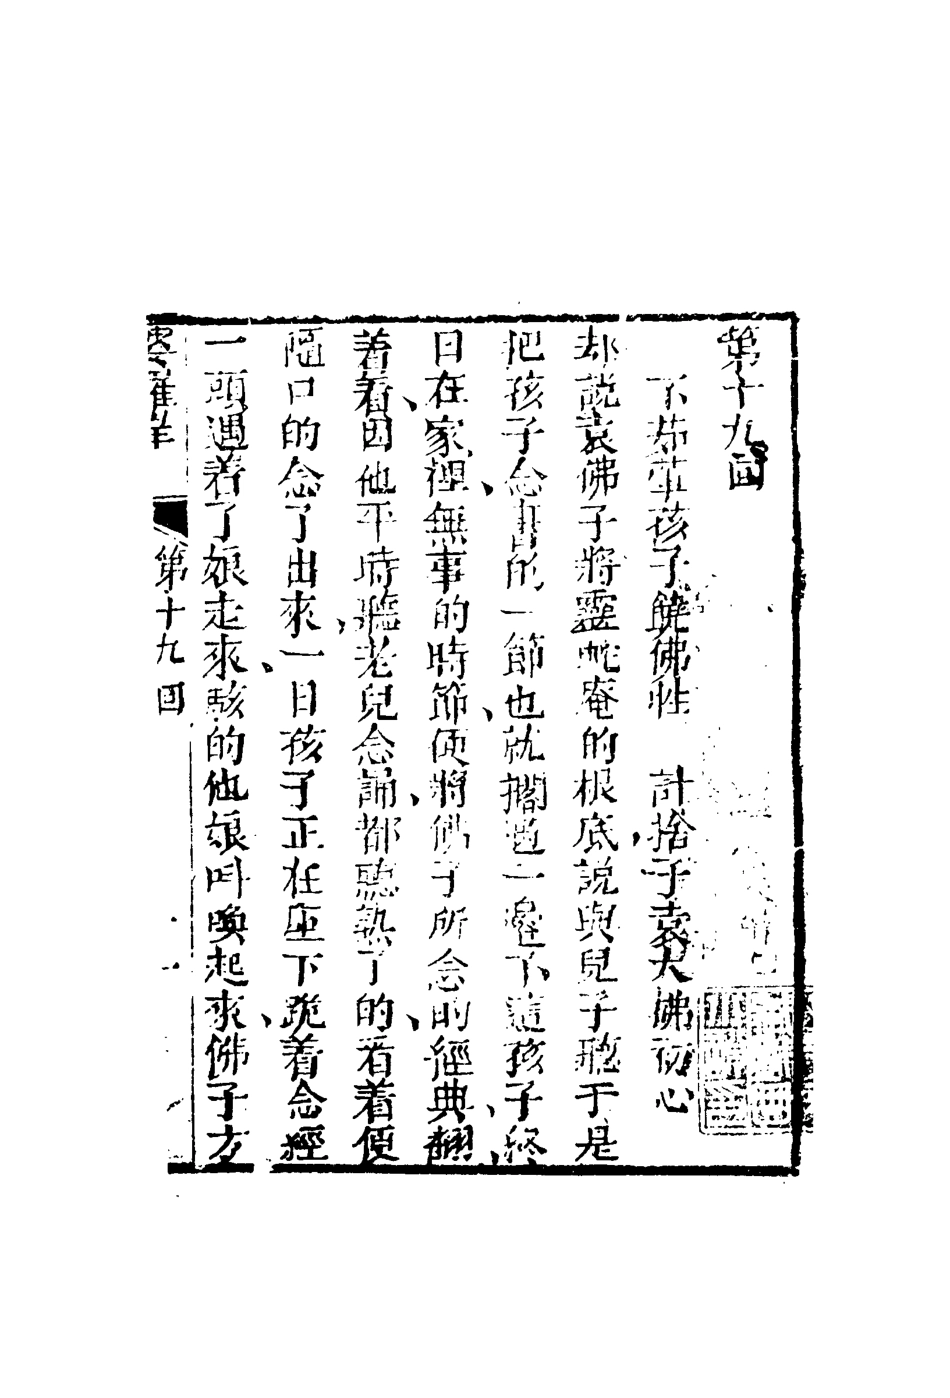 第十九囬
不茹葷孩子饒佛性　計捨子袁大佛初心
却説袁佛子將靈蛇庵的根底説與兒子聽于是
把孩子念書的一節也就擱過一邊不題孩子終
日在家裡無事的時節便將佛子所念的經典翻
着看因他平時聽老兒念誦都聽熟了的看着便
順口的念了出來一日孩子正在座下跪着念經
一頭遇着了娘走來駭的他娘叫喚起來佛子方
第十九囬